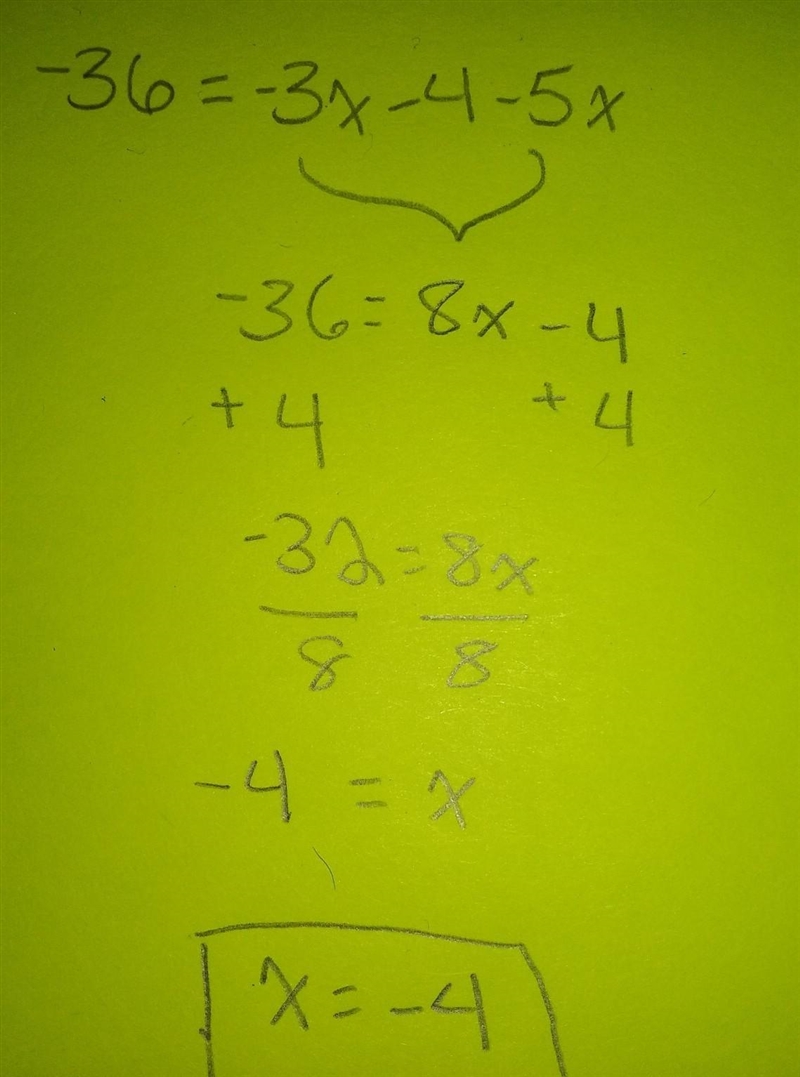 -36 = -3x - 4 - 5x
-36 = 8x - 4
+ 4 + 4
-32 = 8x
8 8
-4 = x
x = -4